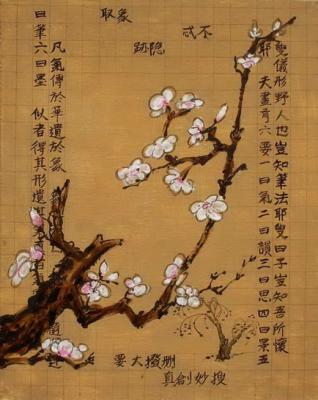 取象
不惑
隐跡
叟儀形野人也豈知筆法耶叟曰子豈知吾所懷
耶 夫畫有六要一曰氣二曰韻三曰思四曰景五
凡氣傳於華遺於象
曰筆六曰墨 似者得其形遺其
刪撥大要
搜妙創真